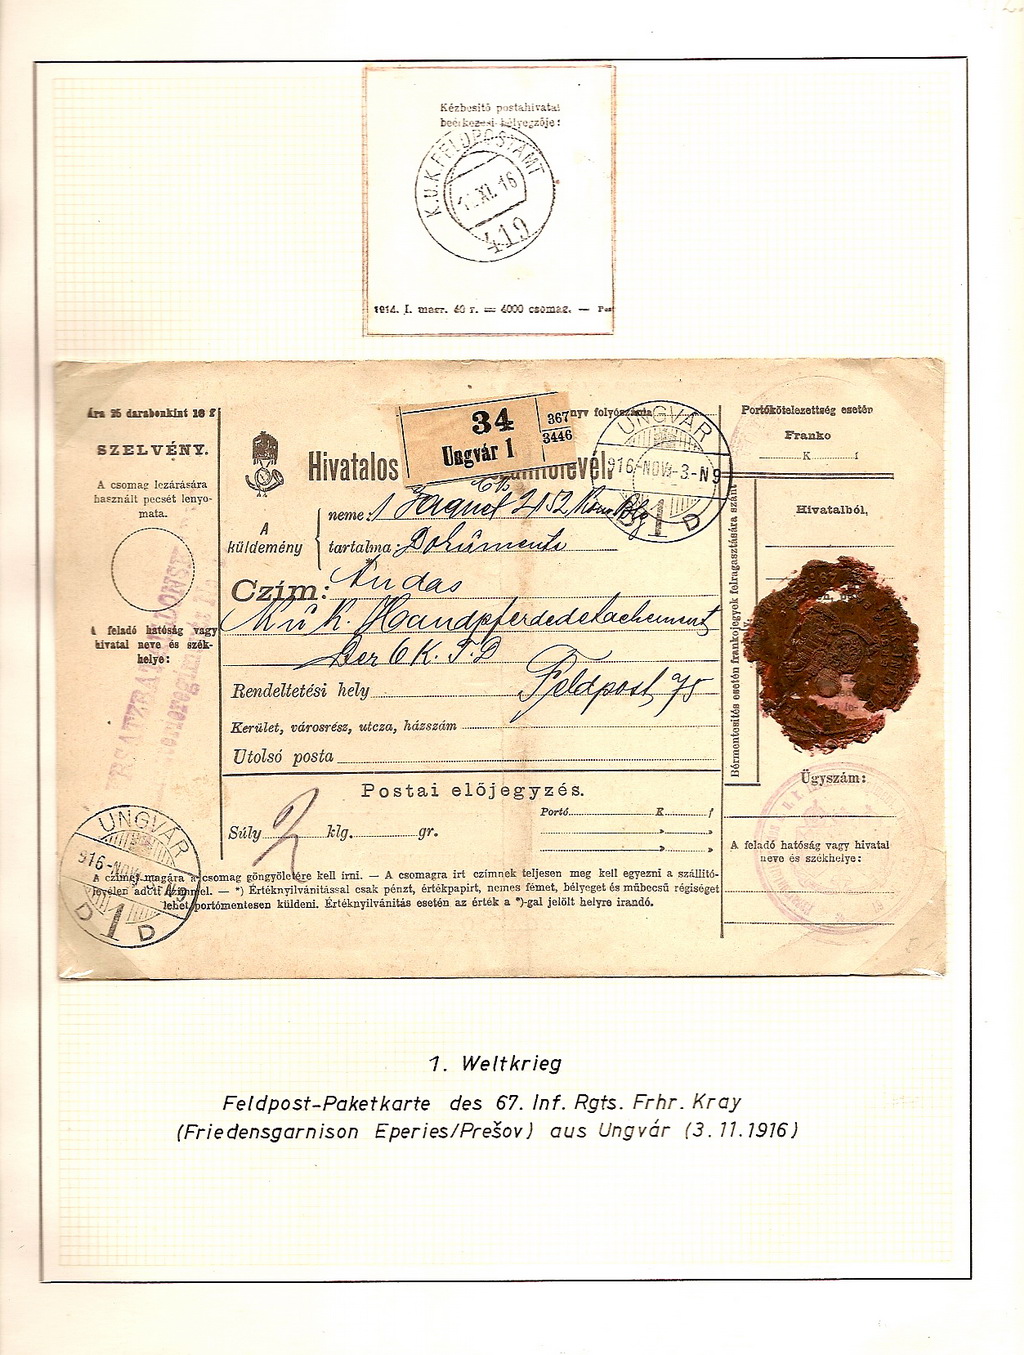 Kézbesítő postahivatal
beérkezési bélyegzője:
K.U.K. FELDPOSTAMT
XI. 16
419
1914. I. 40 r. = 4000 csomag. —
Ára 25 darabonkint 10 f
SZELVÉNY.
A csomag lezárására
használt pecsét lenyo-
mata.
A feladó hatóság vagy
hivatal neve és szék-
helye:
Hivatalos
34
Ungvár 1
367
3446
UNGVÁR
916-NOV-3-N9
1 D
A
küldemény
neme:
tartalma: Dokumente
Czím: Andas
K u K. Handpferdedetachement
der 6 K. T. D
Rendeltetési hely Feldpost 75
Kerület, városrész, utcza, házszám
Utolsó posta
Postai előjegyzés.
Súly 2 klg. gr.
Portó K f
A czímet magára a csomag göngyöletére kell írni. — A csomagra írt czímnek teljesen meg kell egyezni a szállító-
levélen adott czímmel. — *) Értéknyilvánítással csak pénzt, értékpapírt, nemes fémet, bélyeget és műbecsű régiséget
lehet portómentesen küldeni. Értéknyilvánítás esetén az érték a *)-gal jelölt helyre irandó.
Portókötelezettség esetén
Franko
K f
Hivatalból,
Bérmentesítés esetén frankojegyek felragasztására szánt
Ügyszám:
A feladó hatóság vagy hivatal
neve és székhelye:
UNGVÁR
916-NOV
D 1 D
1. Weltkrieg
Feldpost-Paketkarte des 67. Inf. Rgts. Frhr. Kray
(Friedensgarnison Eperies/Prešov) aus Ungvár (3.11.1916)